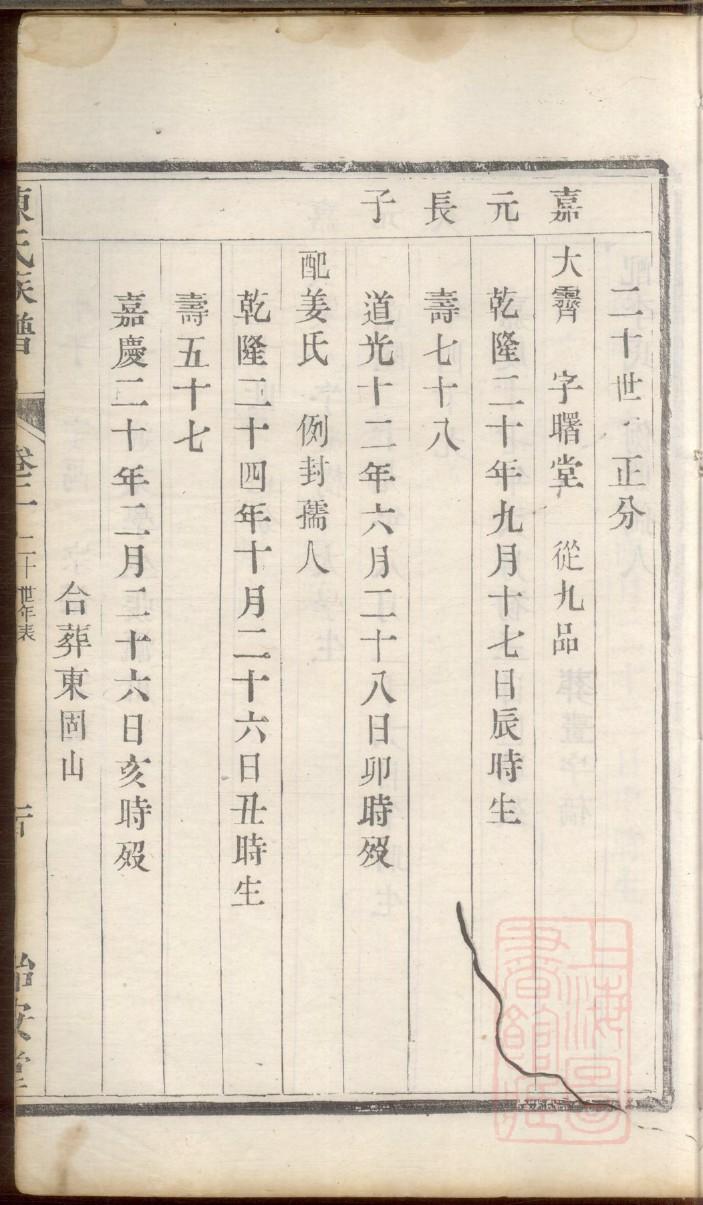 二十世 正分
嘉元長子
大霽 字曙堂 從九品
乾隆二十年九月十七日辰時生
壽七十八
道光十二年六月二十八日卯時歿
配姜氏 例封孺人
乾隆二十四年十月二十六日丑時生
壽五十七
嘉慶二十年二月二十六日亥時歿
合葬東固山
陳氏族譜
二十世年表
怡安堂
上海圖書館藏